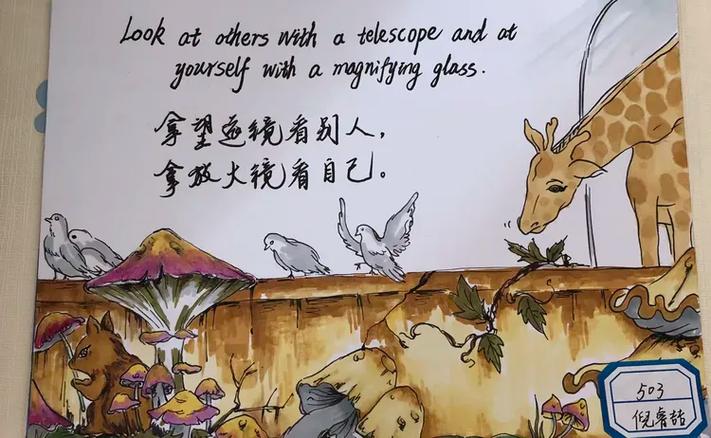 Look at others with a telescope and at
yourself with a magnifying glass.
拿望远镜看别人，
拿放大镜看自己。
503
倪睿喆